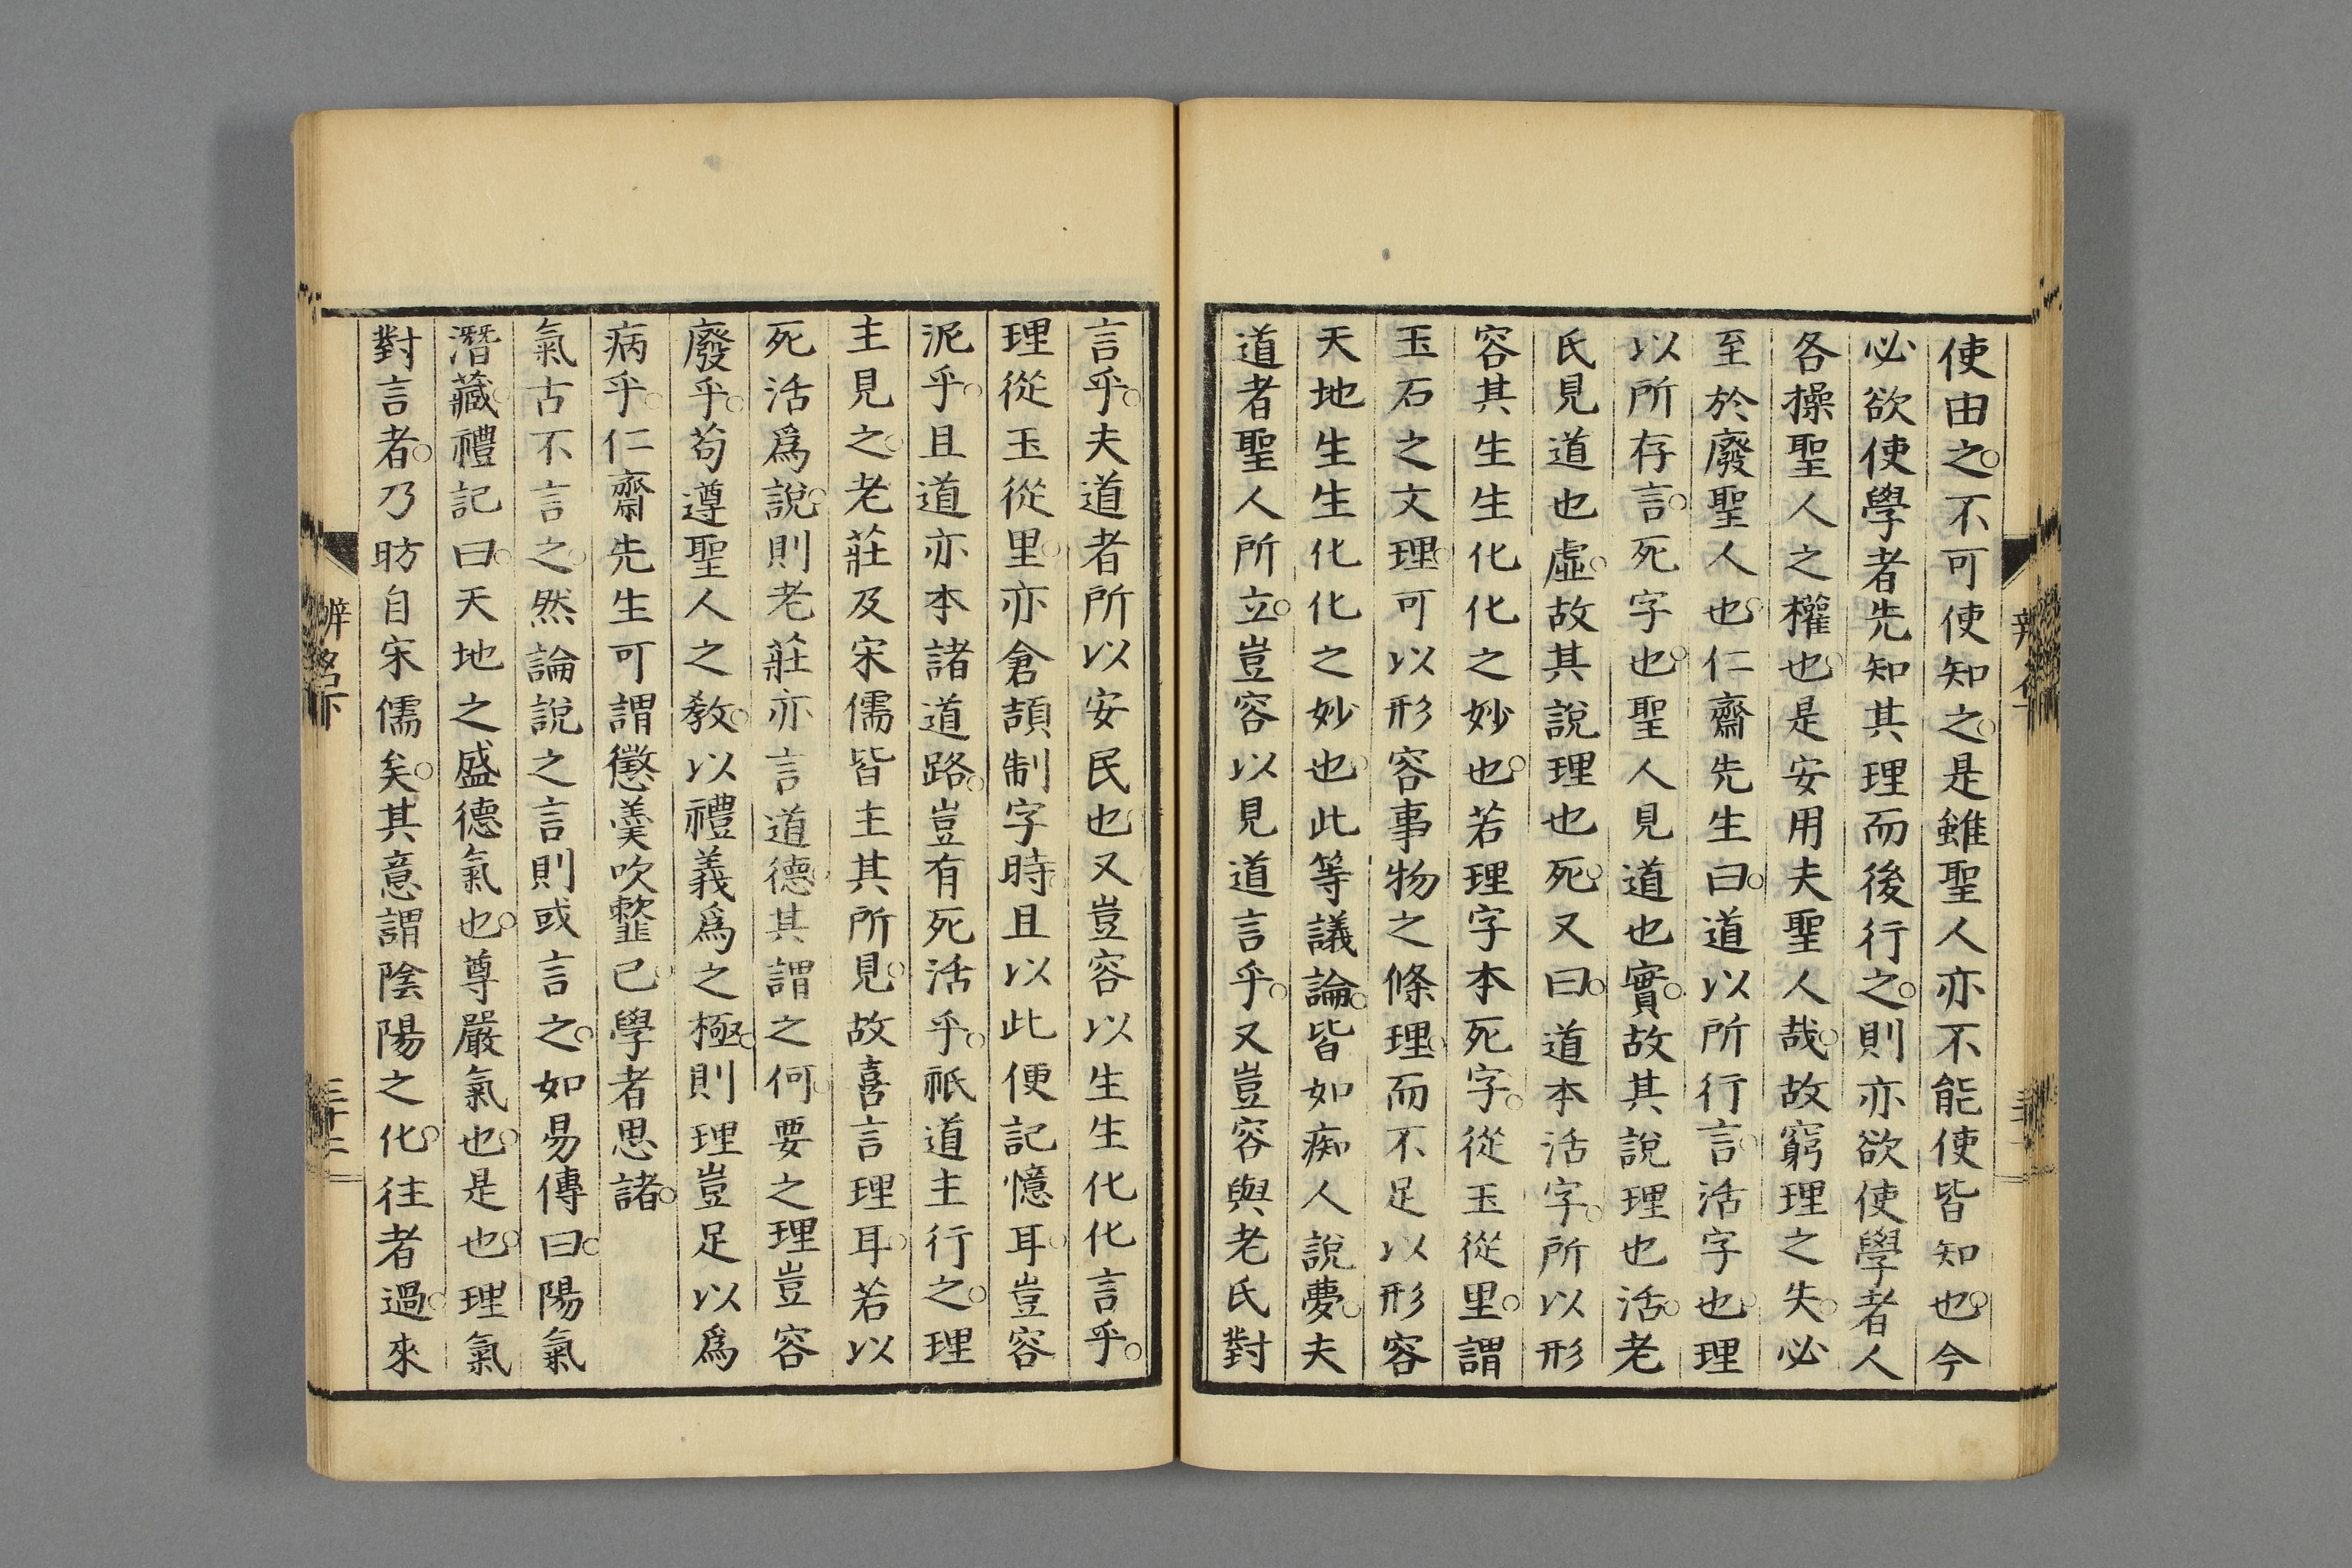 使由之。不可使知之。是雖聖人亦不能使皆知也。今
必欲使學者先知其理而後行之。則亦欲使學者人
各操聖人之權也。是安用夫聖人哉。故窮理之失。必
至於廢聖人也。仁齋先生曰。道以所行言。活字也。理
以所存言。死字也。聖人見道也實。故其說理也活。老
氏見道也虛。故其說理也死。又曰。道本活字。所以形
容其生生化化之妙也。若理字本死字。從玉從里。謂
玉石之文理。可以形容事物之條理。而不足以形容
天地生生化化之妙也。此等議論。皆如痴人說夢。夫
道者聖人所立。豈容以見道言乎。又豈容與老氏對
言乎。夫道者所以安民也。又豈容以生生化化言乎。
理從玉從里。亦倉頡制字時。且以此便記憶耳。豈容
泥乎。且道亦本諸道路。豈有死活乎。祇道主行之。理
主見之。老莊及宋儒皆主其所見。故喜言理耳。若以
死活爲說。則老莊亦言道德。其謂之何。要之理豈容
廢乎。苟遵聖人之教。以禮義爲之極。則理豈足以爲
病乎。仁齋先生可謂懲羹吹虀已。學者思諸。
氣古不言之。然論說之言則或言之。如易傳曰。陽氣
潛藏。禮記曰。天地之盛德氣也。尊嚴氣也。是也。理氣
對言者。乃昉自宋儒矣。其意謂陰陽之化。往者過。來
辨名下